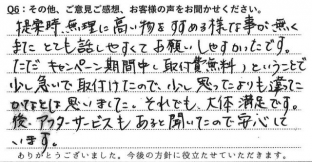 Q6：その他、ご意見ご感想、お客様の声をお聞かせください。
提案時、無理に高い物をすすめる様な事が無く
またとても話しやすくてお願いしやすかったです。
ただキャンペーン期間中、取付費無料、ということで
少し急いで取付けたので、少し思ってたよりも違ってた
かなとは思いました。それでも、大体満足です。
後、アフターサービスもあると聞いたので安心して
います。
ありがとうございました。今後の方針に役立たせていただきます。